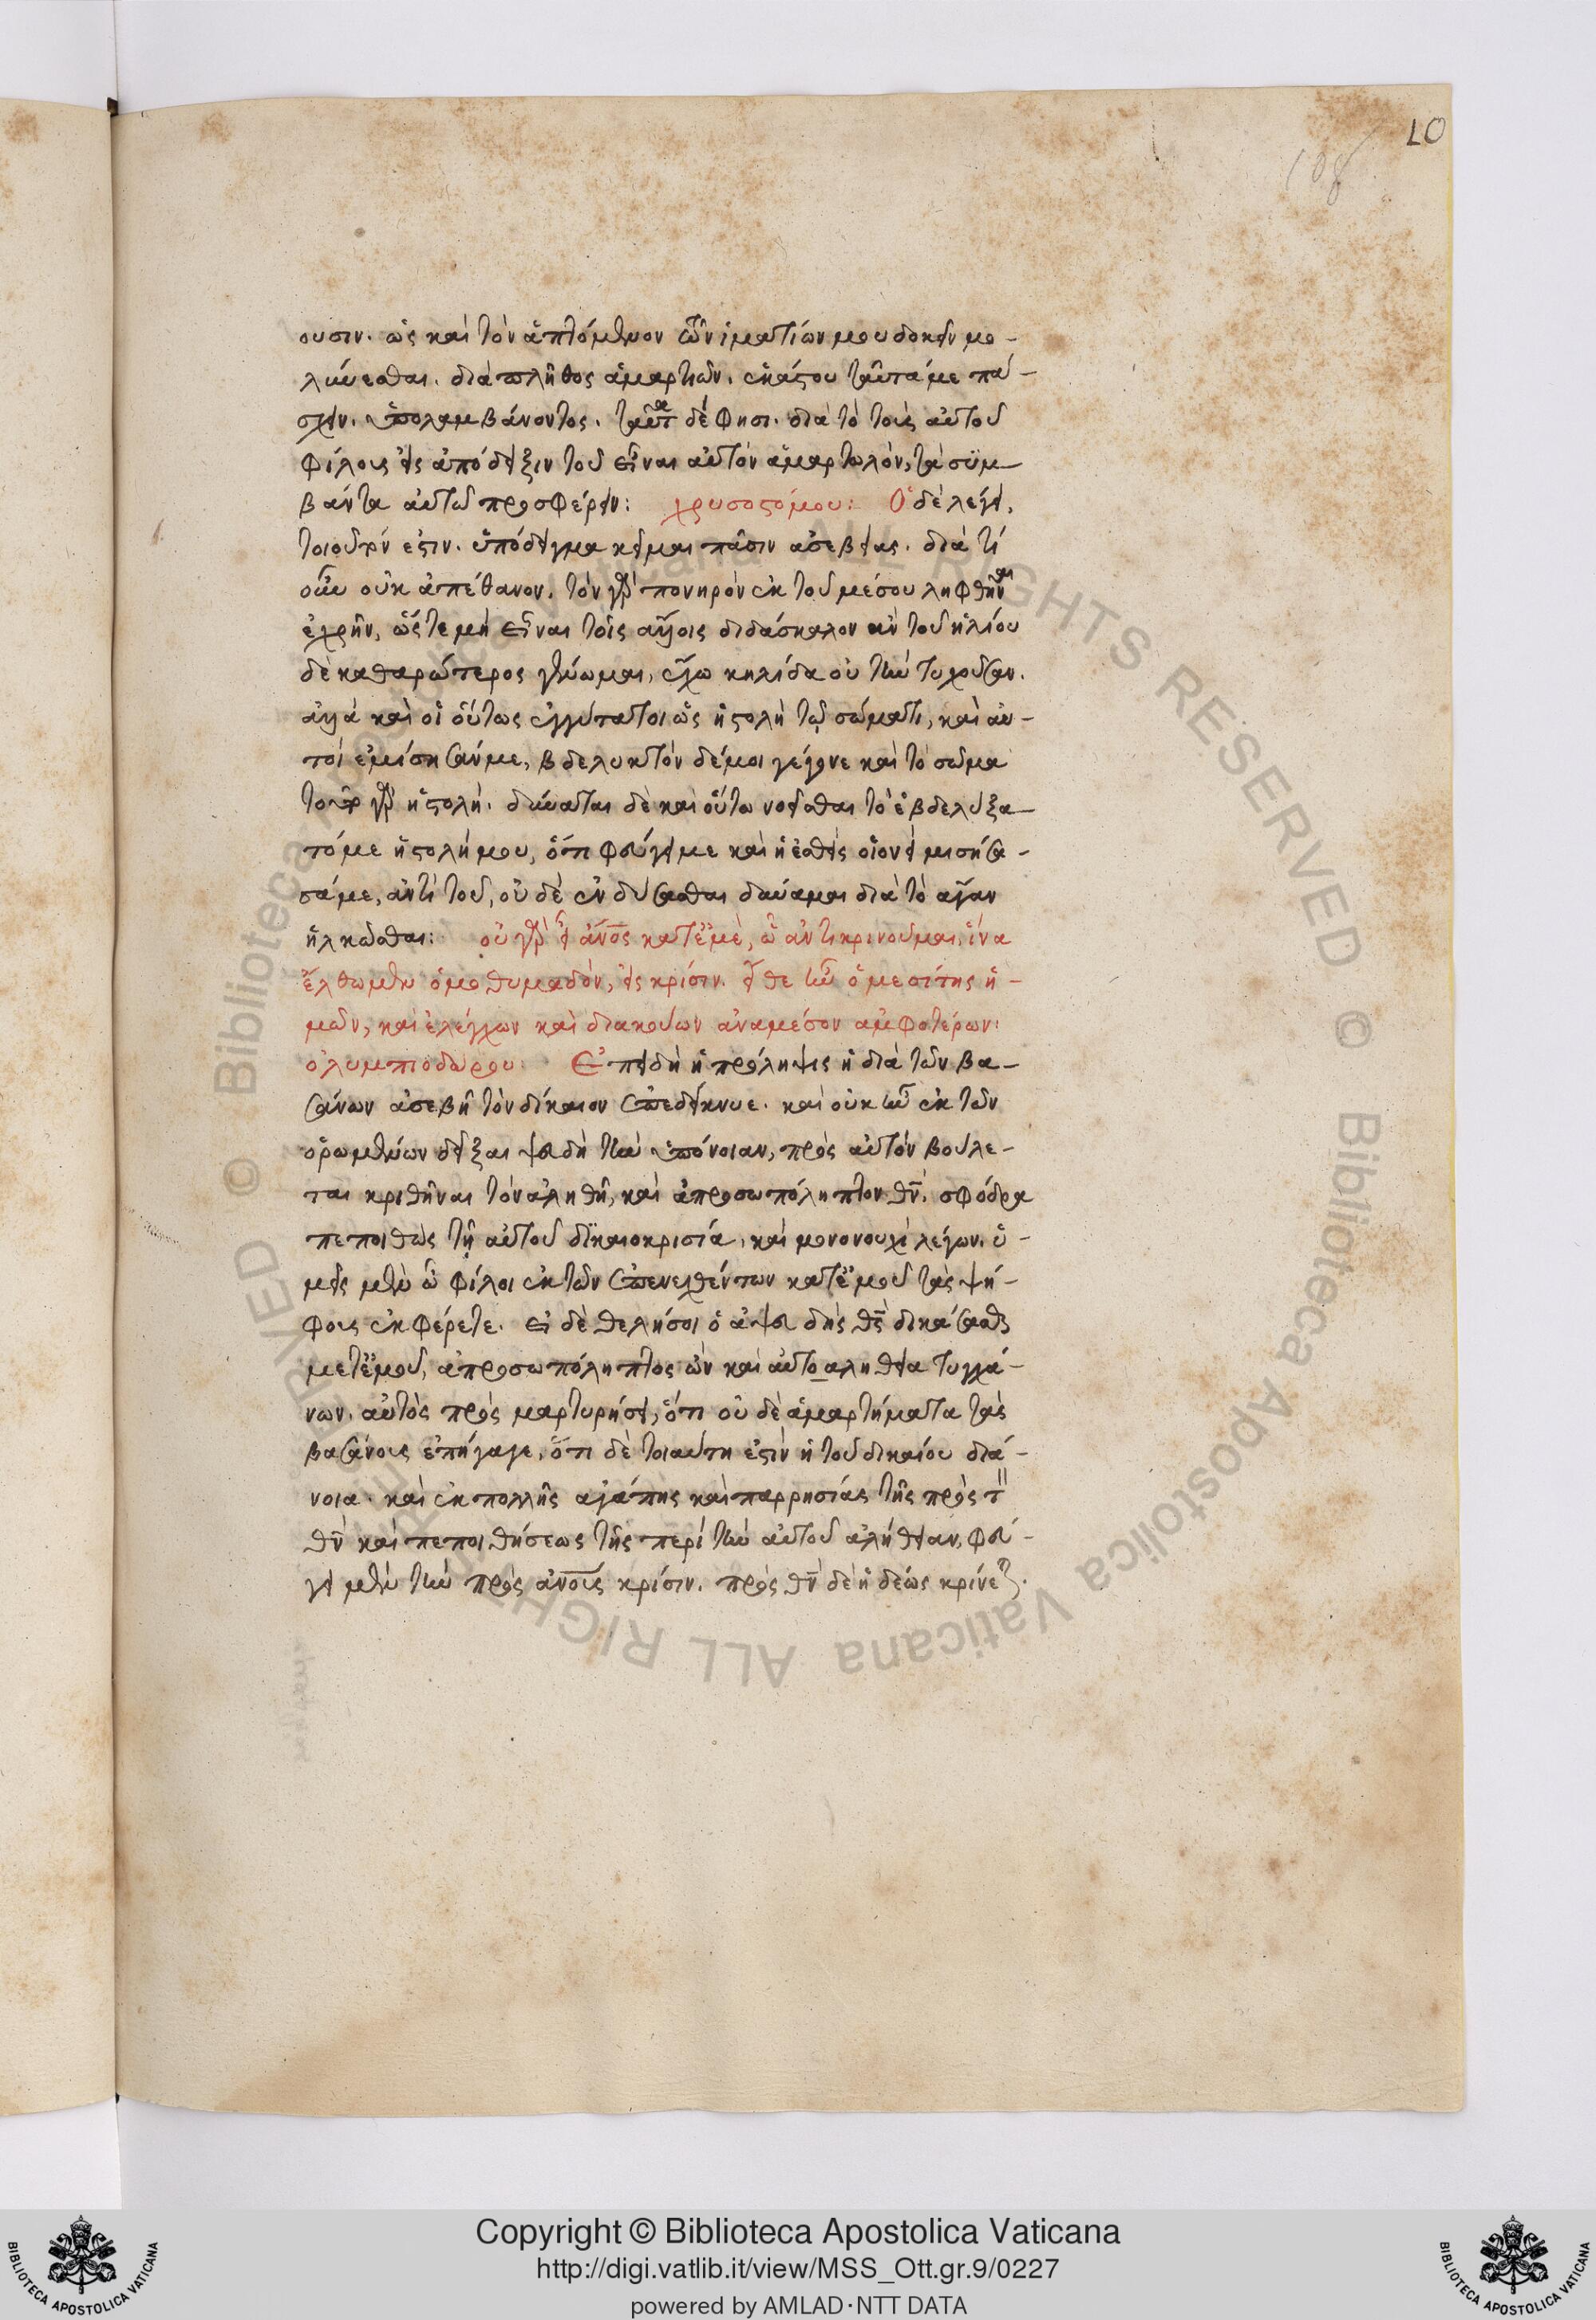 10
108
ουσιν. ὡς καὶ τὸν ἁπτόμενον τῶν ἱματίων μου δοκεῖν μο-
λύνεσθαι. διὰ πλῆθος ἁμαρτιῶν. ἑκάστου ταῦτά με πά-
σχειν. ὑπολαμβάνοντος. ταῦτα δέ φησι. διὰ τὸ τοὺς αὐτοῦ
φίλους εἰς ἀπόδειξιν τοῦ εἶναι αὐτὸν ἁμαρτωλὸν, τὰ συμ-
βάντα αὐτῶ προσφέρειν: χρυσοστόμου: Ὁ δὲ λέγει,
τοιοῦτόν ἐστιν. ὑπόδειγμα κεῖμαι πᾶσιν ἀσεβείας. διὰ τί
οὖν οὐκ ἀπέθανον. τὸν γὰρ πονηρὸν ἐκ τοῦ μέσου ληφθῆναι
ἐχρῆν, ὥστε μὴ εἶναι τοῖς ἄλλοις διδάσκαλον κἂν τοῦ ἡλίου
δὲ καθαρώτερος γένωμαι, ἔχω κηλίδα οὐ τὴν τυχοῦσαν.
ἀλλὰ καὶ οἱ οὕτως ἐγγύτατοι ὡς ἡ στολὴ τῷ σώματι, καὶ αὐ-
τοὶ ἐμίσησάν με, βδελυκτὸν δέ μοι γέγονε καὶ τὸ σῶμα
τοῦτο γὰρ ἡ στολή. δύναται δὲ καὶ οὕτω νοεῖσθαι τὸ ἐβδελύξα-
τό με ἡ στολή μου, ὅτι φεύγει με καὶ ἡ ἐσθὴς οἱονεὶ μισήσα-
σά με, ἀντὶ τοῦ, οὐδὲ ἐνδύσασθαι δύναμαι διὰ τὸ ἄγαν
ἡλκῶσθαι: οὐ γὰρ εἶ ἄνος κατ' ἐμὲ, ᾧ ἀντικρινοῦμαι, ἵνα
ἔλθωμεν ὁμοθυμαδὸν, εἰς κρίσιν. εἴθε ἦν ὁ μεσίτης ἡ-
μῶν, καὶ ἐλέγχων καὶ διακούων ἀναμέσον ἀμφοτέρων:
ὀλυμπιοδώρου: Ἐπειδὴ ἡ πρόληψις ἡ διὰ τῶν βα-
σάνων ἀσεβῆ τὸν δίκαιον ὑπεδείκνυε. καὶ οὐκ ἦν ἐκ τῶν
ὁρωμένων δεῖξαι ψευδῆ τὴν ὑπόνοιαν, πρὸς αὐτὸν βούλε-
ται κριθῆναι τὸν ἀληθῆ, καὶ ἀπροσωπόληπτον θν̄. σφόδρα
πεποιθὼς τῇ αὐτοῦ δικαιοκρισία, καὶ μονονουχὶ λέγων. ὑ-
μεῖς μὲν ὦ φίλοι ἐκ τῶν ἐπενεχθέντων κατ' ἐμοῦ τὰς ψή-
φους ἐκφέρετε. εἰ δὲ θελήσοι ὁ ἀψευδὴς θς̄ δικάσασθαι
μετ' ἐμοῦ, ἀπροσωπόληπτος ὢν καὶ αὐτοαλήθεια τυγχά-
νων, αὐτὸς προσμαρτυρήσει, ὅτι οὐ δὲ ἁμαρτήματα τὰς
βασάνους ἐπήγαγε. ὅτι δὲ τοιαύτη ἐστὶν ἡ τοῦ δικαίου διά-
νοια. καὶ ἐκ πολλῆς ἀγάπης καὶ παρρησίας τῆς πρὸς τὸν
θν̄ καὶ πεποιθήσεως τῆς περὶ τὴν αὐτοῦ ἀλήθειαν, φεύ-
γει μὲν τὴν πρὸς ἀνους κρίσιν. πρὸς θν̄ δὲ ἡδέως κρίνεται.
Copyright © Biblioteca Apostolica Vaticana
http://digi.vatlib.it/view/MSS_Ott.gr.9/0227
powered by AMLAD·NTT DATA
BIBLIOTECA APOSTOLICA VATICANA
BIBLIOTECA APOSTOLICA VATICANA
© Biblioteca Apostolica Vaticana ALL RIGHTS RESERVED © Biblioteca Apostolica Vaticana ALL RIGHTS RESERVED